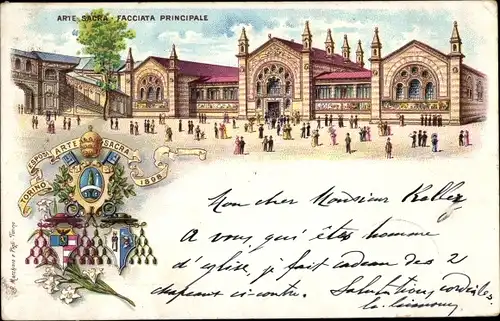 ARTE SACRA - FACCIATA PRINCIPALE
ESPOSIZ. ARTE SACRA
TORINO 1898
Mon cher Monsieur Keller
A vous, qui êtes homme
d'église, je fait cadeau des 2
chapeaux ci-contre. Salutations cordiales